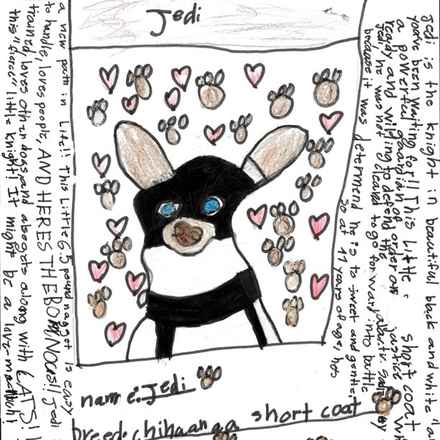 Jedi
Jedi is the knight in beautiful black and white
you've been waiting for!! This Little, short coat
a powerful guardian of order
ready and willing to defend the
Jedi, he was not cleard to go forward into battle
because it was determend he is to sweet and gentle
so at 11 years of age, hes
a new path in Life!! This Little 6.5 pound nugget is easy
to hundle, loves people, AND HERES THE BONUS!! Jedi
trained, loves other dogs, and alsogets along with CATS!
this "fierce" little knight! It might be a luve-match!
name: Jedi
breed: chihaanga short coat